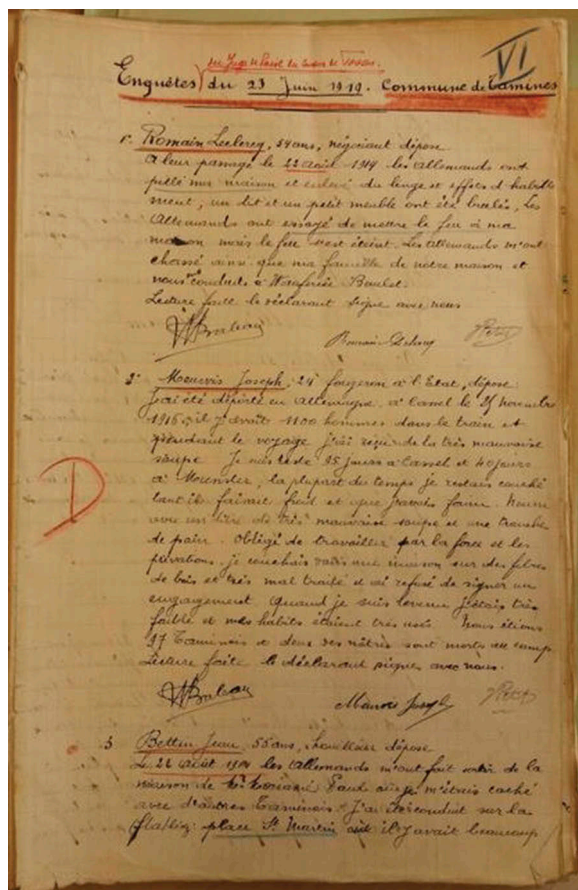 VI
du Juge de Paix du canton de
Enquêtes du 23 Juin 1919. Commune de Tamines
1° Romain Leclercq, 54 ans, négociant dépose
A leur passage le 22 août 1914 les allemands ont
pillé ma maison et enlevé du linge et effets d'habille
ment, un lit et un petit meuble ont été brûlés, Les
Allemands ont essayé de mettre le feu à ma
maison mais le feu s'est éteint. Les allemands m'ont
chassé ainsi que ma famille de notre maison et
nous conduits à Wanfercée Baulet.
Lecture faite le déclarant signe avec nous
Petit
2° Joseph, 24 à l'Etat, dépose:
J'ai été déporté en allemagne, à Cassel le 25 novembre
1916, il y avait 1100 hommes dans le train et
pendant le voyage j'ai reçu de la très mauvaise
soupe. Je suis resté 95 jours à Cassel et 40 jours
à Meunster, la plupart du temps je restais couché
tant il faisait froid et que j'avais faim. Nourri
avec un litre de très mauvaise soupe et une tranche
de pain. Obligé de travailler par la force et les
privations. je couchais dans une maison sur des fibres
de bois et très mal traité et ai refusé de signer un
engagement. Quand je suis revenu j'étais très
faible et mes habits étaient très usés. Nous étions
97 Taminois et deux des nôtres sont morts au camp
Lecture faite le déclarant signe avec nous.
Joseph Petit
D
3 Bettin Jean, 55 ans, houilleur dépose
Le 22 août 1914 les allemands m'ont fait sortir de la
maison de où je m'étais caché
avec d'autres Taminois. J'ai été conduit sur la
place St Martin où il y avait beaucoup